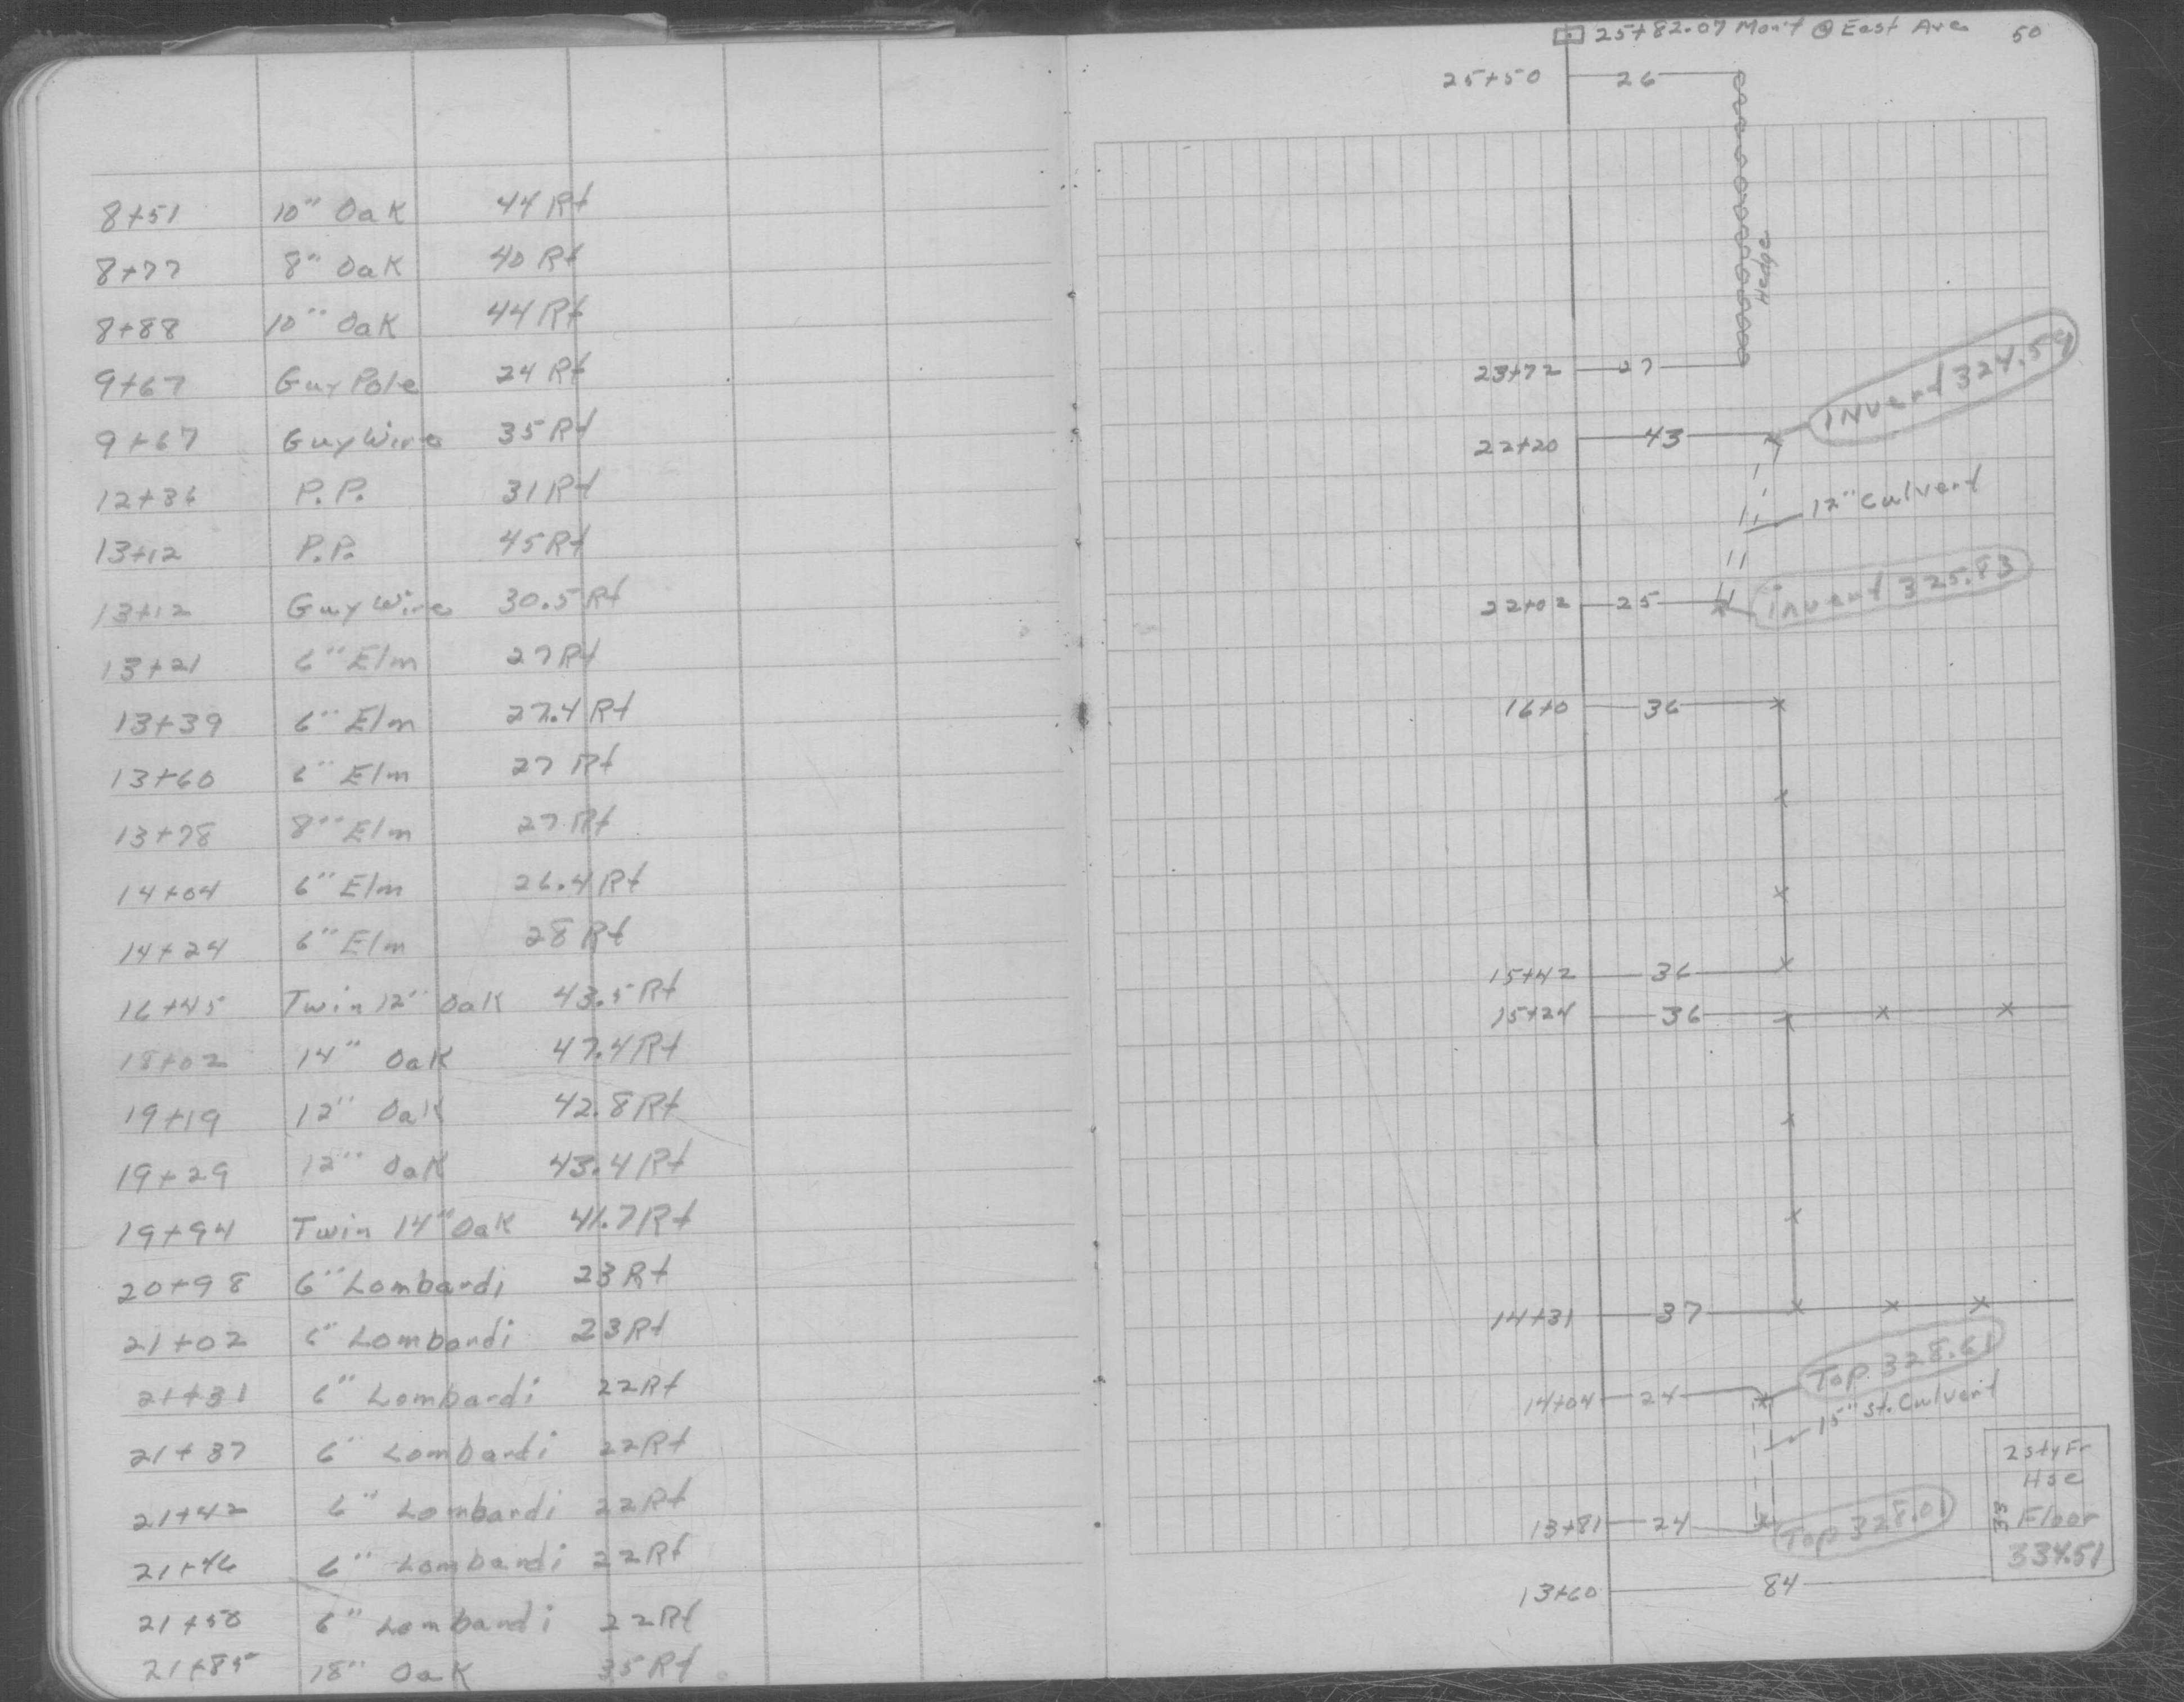 8+51 10" Oak 44 Rt
8+77 8" Oak 40 Rt
8+88 10" Oak 44 Rt
9+67 Guy Pole 24 Rt
9+67 Guy Wire 35 Rt
12+36 P.P. 31 Rt
13+12 P.P. 45 Rt
13+12 Guy Wire 30.5 Rt
13+21 6" Elm 27 Rt
13+39 6" Elm 27.4 Rt
13+60 6" Elm 27 Rt
13+78 8" Elm 27 Rt
14+04 6" Elm 26.4 Rt
14+24 6" Elm 28 Rt
16+45 Twin 12" Oak 43.5 Rt
18+02 14" Oak 47.4 Rt
19+19 12" Oak 42.8 Rt
19+29 12" Oak 43.4 Rt
19+94 Twin 14" Oak 41.7 Rt
20+98 6" Lombardi 23 Rt
21+02 6" Lombardi 23 Rt
21+31 6" Lombardi 22 Rt
21+37 6" Lombardi 22 Rt
21+42 6" Lombardi 22 Rt
21+46 6" Lombardi 22 Rt
21+50 6" Lombardi 22 Rt
21+85 18" Oak 35 Rt
25+82.07 Mon't @ East Ave 50
25+50 26
Hedge
23+72 27
invert 324.59
22+20 43
12" Culvert
22+02 25 invert 325.83
16+0 36
15+42 36
15+24 36
14+31 37
Top 328.61
14+04 24
15" St. Culvert
2 sty Fr
Hse
33
Floor
334.51
13+81 24 Top 328.01
13+60 84